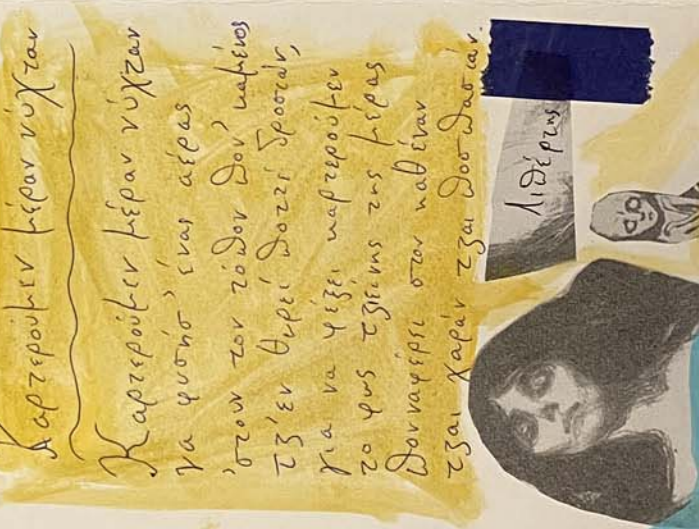 Καρτερούμεν μέραν νύχταν
Καρτερούμεν μέραν νύχταν
να φυσήσ' ένας αέρας
'στουν τον τόπον πον' καμένος
τζ'έν θωρεί ποττέ δροσιάν,
για να φέξει καρτερούμεν
το φως τζιείνης της μέρας
πονναφέρει στον καθέναν
τζαι χαράν τζαι ποσπασιάν.
Λιπέρτης